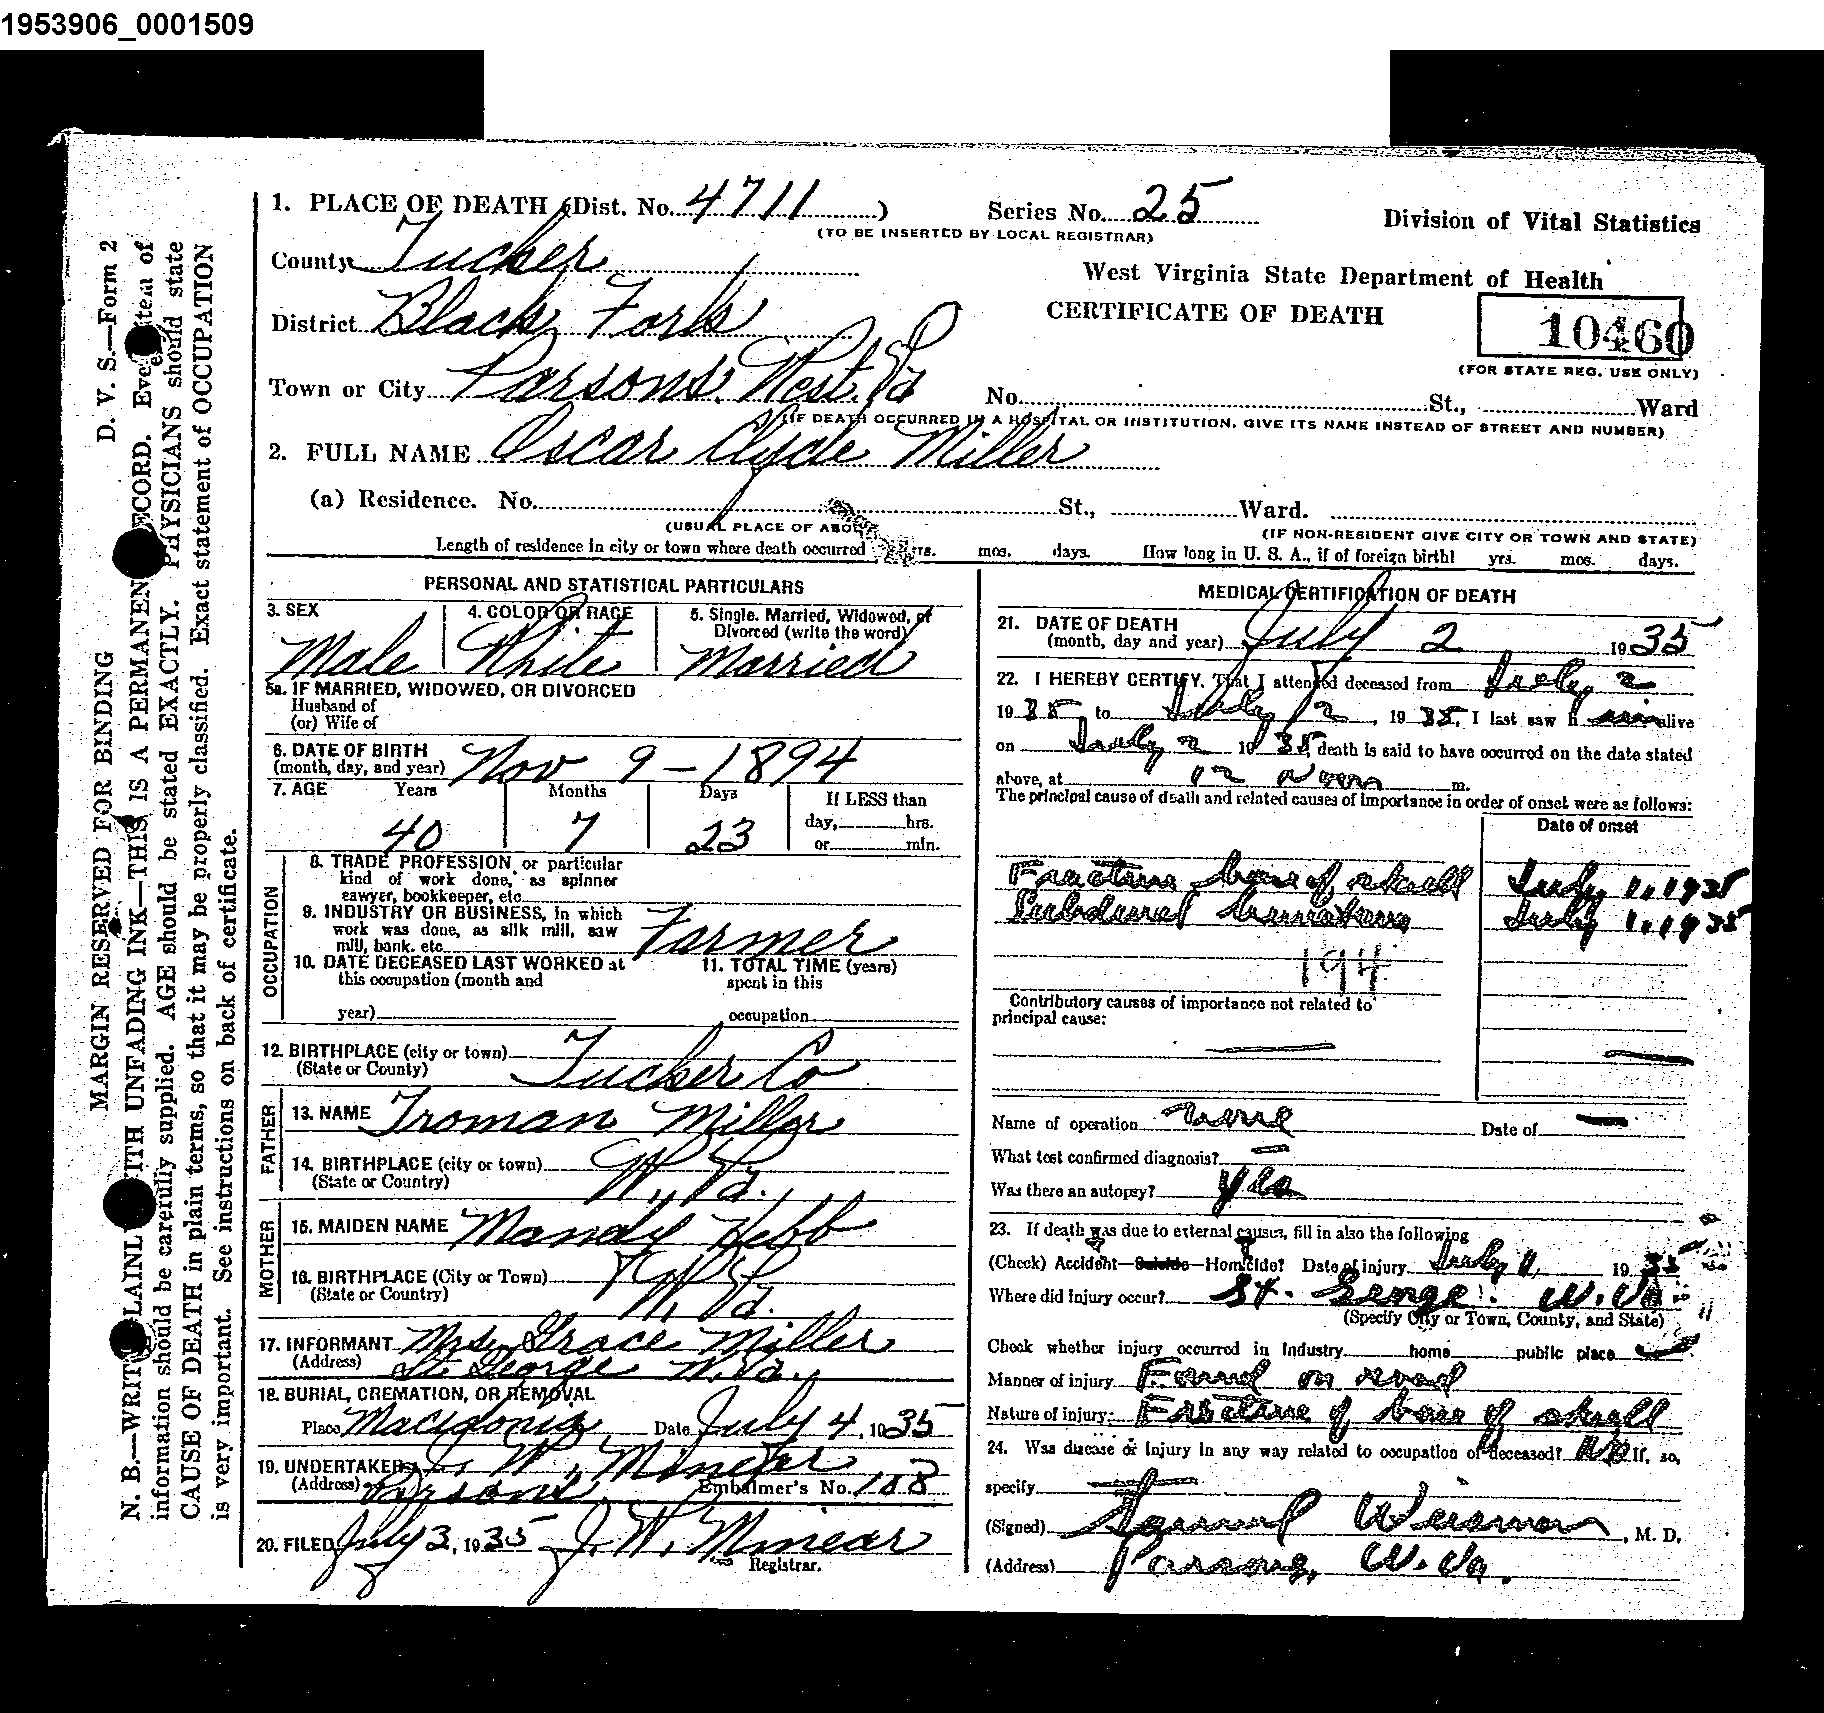 1953906_0001509
1. PLACE OF DEATH (Dist. No. 4711 ) Series No. 25 Division of Vital Statistics
(TO BE INSERTED BY LOCAL REGISTRAR)
County Tucker
West Virginia State Department of Health
District Black Fork
CERTIFICATE OF DEATH
10460
(FOR STATE REG. USE ONLY)
Town or City Parsons. West. Va No. St., Ward
(IF DEATH OCCURRED IN A HOSPITAL OR INSTITUTION, GIVE ITS NAME INSTEAD OF STREET AND NUMBER)
2. FULL NAME Oscar Clyde Miller
(a) Residence. No. St., Ward.
(USUAL PLACE OF ABODE) (IF NON-RESIDENT GIVE CITY OR TOWN AND STATE)
Length of residence in city or town where death occurred yrs. mos. days. How long in U. S. A., if of foreign birth! yrs. mos. days.
PERSONAL AND STATISTICAL PARTICULARS
3. SEX 4. COLOR OR RACE 5. Single. Married, Widowed, or
Divorced (write the word)
Male White Married
5a. IF MARRIED, WIDOWED, OR DIVORCED
Husband of
(or) Wife of
6. DATE OF BIRTH
(month, day, and year) Nov 9 - 1894
7. AGE Years Months Days If LESS than
40 7 23 day, hrs.
or min.
OCCUPATION
8. TRADE PROFESSION or particular
kind of work done, as spinner
sawyer, bookkeeper, etc.
9. INDUSTRY OR BUSINESS, in which
work was done, as silk mill, saw
mill, bank. etc. Farmer
10. DATE DECEASED LAST WORKED at 11. TOTAL TIME (years)
this occupation (month and spent in this
year) occupation
12. BIRTHPLACE (city or town)
(State or County) Tucker Co
FATHER
13. NAME Troman Miller
14. BIRTHPLACE (city or town)
(State or Country) W. Va.
MOTHER
15. MAIDEN NAME Mandy Hebb
16. BIRTHPLACE (City or Town)
(State or Country) W. Va.
17. INFORMANT Mrs Grace Miller
(Address) St. George W. Va.
18. BURIAL, CREMATION, OR REMOVAL
Place Macidonia Date July 4, 1935
19. UNDERTAKER J. W. Minear
(Address) Parsons Embalmer's No. 108
20. FILED July 3, 1935 J. W. Minear
Registrar.
MEDICAL CERTIFICATION OF DEATH
21. DATE OF DEATH
(month, day and year) July 2 1935
22. I HEREBY CERTIFY, That I attended deceased from July 2
1935, to July 2, 1935, I last saw him alive
on July 2 1935, death is said to have occurred on the date stated
above, at 12 noon m.
The principal cause of death and related causes of importance in order of onset were as follows:
Date of onset
Fracture base of skull July 1, 1935
Subdural hematoma July 1, 1935
194
Contributory causes of importance not related to
principal cause:
Name of operation none Date of
What test confirmed diagnosis?
Was there an autopsy? yes
23. If death was due to external causes, fill in also the following
(Check) Accident—Suicide—Homicide? Date of injury July 1, 1935
Where did injury occur? St. George. W. Va
(Specify City or Town, County, and State)
Check whether injury occurred in Industry home public place
Manner of injury Found on road
Nature of injury: Fracture of base of skull
24. Was disease or Injury in any way related to occupation of deceased? no If, so,
specify
(Signed) Weisman, M. D.
(Address) Parsons, W. Va.
D. V. S.—Form 2
MARGIN RESERVED FOR BINDING
N. B.—WRITE PLAINLY WITH UNFADING INK—THIS IS A PERMANENT RECORD. Every item of
information should be carefully supplied. AGE should be stated EXACTLY. PHYSICIANS should state
CAUSE OF DEATH in plain terms, so that it may be properly classified. Exact statement of OCCUPATION
is very important. See instructions on back of certificate.